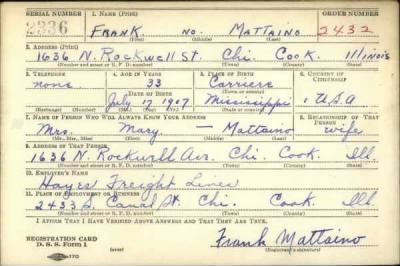 SERIAL NUMBER 1. NAME (Print) ORDER NUMBER
2336 FRANK NO. MATTAINO 2432
(First) (Middle) (Last)
2. ADDRESS (Print)
1636 N. Rockwell St. Chi. Cook. Illinois
(Number and street or R. F. D. number) (Town) (County) (State)
3. TELEPHONE 4. AGE IN YEARS 5. PLACE OF BIRTH 6. COUNTRY OF CITIZENSHIP
none 33 Carriere
DATE OF BIRTH (Town or county)
July 17 1907 Mississippi U.S.A
(Exchange) (Number) (Mo.) (Day) (Yr.) (State or country)
7. NAME OF PERSON WHO WILL ALWAYS KNOW YOUR ADDRESS 8. RELATIONSHIP OF THAT PERSON
Mrs. Mary — Mattaino wife
(Mr., Mrs., Miss) (First) (Middle) (Last)
9. ADDRESS OF THAT PERSON
1636 N. Rockwell Ave. Chi. Cook. Ill
(Number and street or R. F. D. number) (Town) (County) (State)
10. EMPLOYER'S NAME
Hayes Freight Lines
11. PLACE OF EMPLOYMENT OR BUSINESS
2433 S. Canal St. Chi. Cook. Ill
(Number and street or R. F. D. number) (Town) (County) (State)
I AFFIRM THAT I HAVE VERIFIED ABOVE ANSWERS AND THAT THEY ARE TRUE.
REGISTRATION CARD
D. S. S. Form 1 (over) Frank Mattaino
(Registrant's signature)